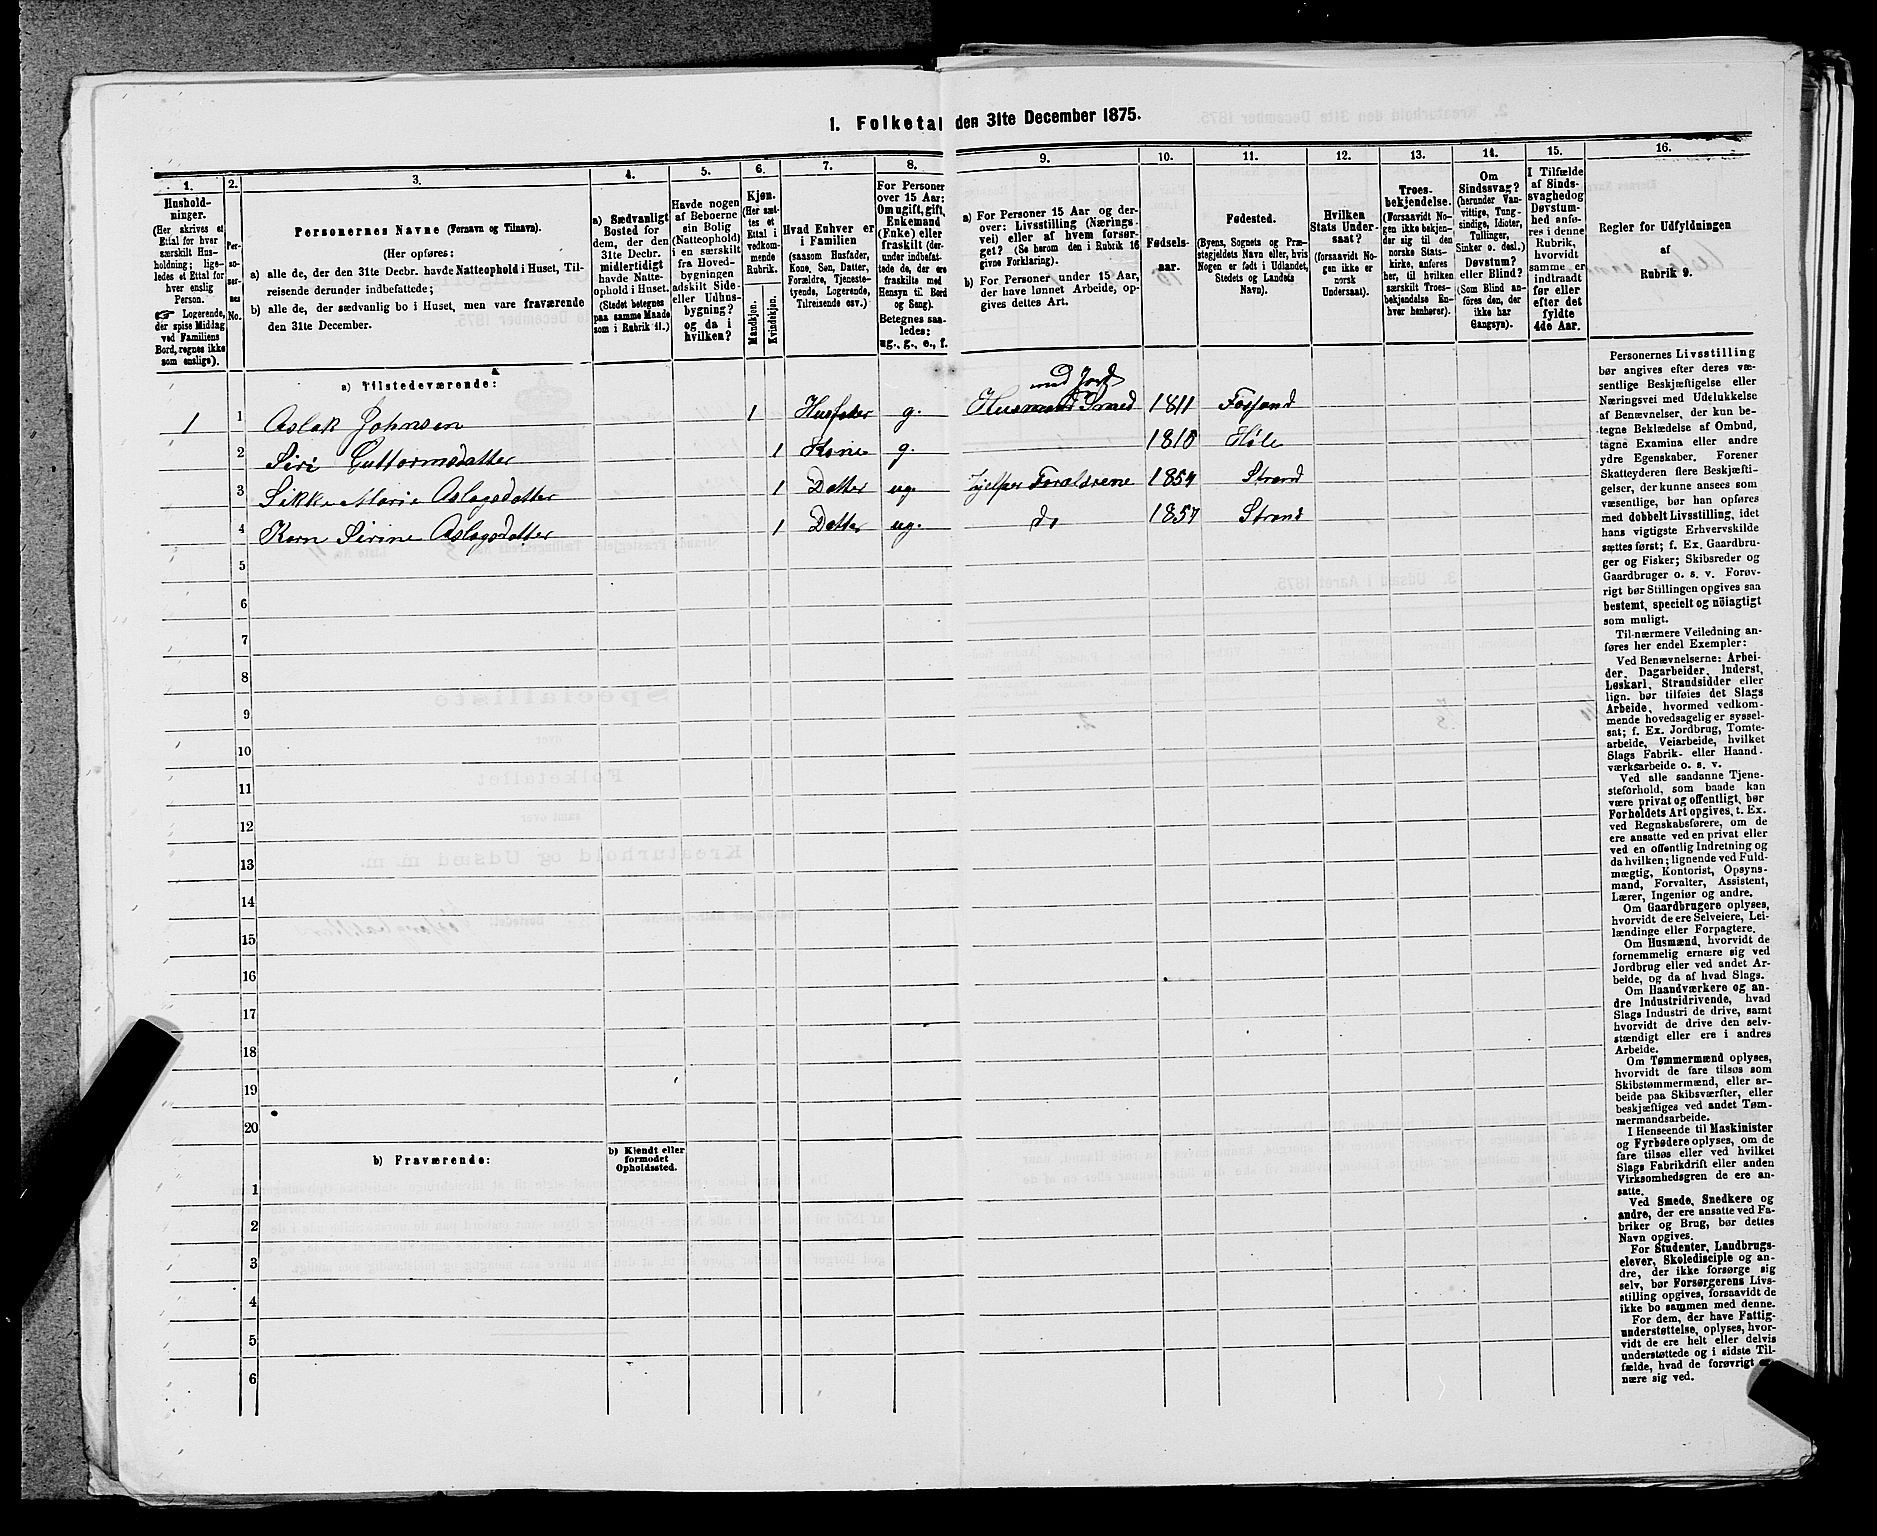 1. Folketal den 31te December 1875.
1.
2.
3.
4.
5.
6.
7.
8.
9.
10.
11.
12.
13.
14.
15.
16.
Hushold-
ninger.
(Her skrives et
Ettal for hver
særskilt Hus-
holdning; lige-
ledes et Ettal for
hver enslig
Person.
☞ Logerende,
der spise Middag
ved Familiens
Bord, regnes ikke
som enslige).
Per-
so-
ner-
nes
No.
Personernes Navne (Fornavn og Tilnavn).
(Her opføres:
a) alle de, der den 31te Decbr. havde Natteophold i Huset, Til-
reisende derunder indbefattede;
b) alle de, der sædvanlig bo i Huset, men vare fraværende
den 31te December.
a) Sædvanligt
Bosted for
dem, der den
31te Decbr.
midlertidigt
havde Natte-
ophold i Huset.
(Stedet betegnes
paa samme Maade
som i Rubrik 11.)
Havde nogen
af Beboerne
sin Bolig
(Natteophold)
i en særskilt
fra Hoved-
bygningen
adskilt Side-
eller Udhus-
bygning?
og da i
hvilken?
Kjøn.
(Her sæt-
tes et
Ettal i
vedkom-
mende
Rubrik.
Mandkjøn.
Kvindekjøn.
Hvad Enhver er
i Familien
(saasom Husfader,
Kone, Søn, Datter,
Forældre, Tjeneste-
tyende, Logerende,
Tilreisende osv.)
For Personer
over 15 Aar:
Om ugift, gift,
Enkemand
(Enke) eller
fraskilt (der-
under indbefat-
tede de, der ere
fraskilte med
Hensyn til Bord
og Seng).
Betegnes saa-
ledes:
ug., g., e., f.
a) For Personer 15 Aar og der-
over: Livsstilling (Nærings-
vei) eller af hvem forsør-
get? (Se herom den i Rubrik 16
givne Forklaring).
b) For Personer under 15 Aar,
der have lønnet Arbeide, op-
gives dettes Art.
Fødsels-
aar.
Fødested.
(Byens, Sognets og Præ-
stegjeldets Navn eller, hvis
Nogen er født i Udlandet,
Stedets og Landets
Navn).
Hvilken
Stats Under-
saat?
(forsaavidt No-
gen ikke er
norsk
Undersaat).
Troes-
bekjendelse.
(Forsaavidt No-
gen ikke bekjen-
der sig til den
norske Stats-
kirke, anføres
her, til hvilken
særskilt Troes-
bekjendelse En-
hver henhører).
Om
Sindssvag?
(herunder Van-
vittige, Tung-
sindige, Idioter,
Tullinger,
Sinker o. desl.)
Døvstum?
eller Blind?
(Som Blind an-
føres den, der
ikke har
Gangsyn).
I Tilfælde
af Sinds-
svaghed og
Døvstum-
hed anfø-
res i denne
Rubrik,
hvorvidt
samme er
indtraadt
før eller
efter det
fyldte
4de Aar.
Regler for Udfyldningen
af
Rubrik 9.
a) Tilstedeværende:
med Jord
1 1 Aslak Johnsen 1 Husfader g. Husmand Smed 1811 Fossand
2 Siri Guttormsdatter 1 Kone g. 1810 Høle
3 Sikke Marie Aslagsdatter 1 Datter ug. hjelper Forældrene 1854 Strand
4 Karn Sirine Aslagsdatter 1 Datter ug. do 1857 Strand
5
6
7
8
9
10
11
12
13
14
15
16
17
18
19
20
b) Fraværende:
b) Kjendt eller
formodet
Opholdssted.
1
2
3
4
5
6
Personernes Livsstilling
bør angives efter deres væ-
sentlige Beskjæftigelse eller
Næringsvei med Udelukkelse
af Benævnelser, der kun be-
tegne Beklædelse af Ombud,
tagne Examina eller andre
ydre Egenskaber. Forener
Skatteyderen flere Beskjæfti-
gelser, der kunne ansees som
væsentlige, bør han opføres
med dobbelt Livsstilling, idet
hans vigtigste Erhvervskilde
sættes først; f. Ex. Gaardbru-
ger og Fisker; Skibsreder og
Gaardbruger o. s. v. Forøv-
rigt bør Stillingen opgives saa
bestemt, specielt og nöiagtigt
som muligt.
Til nærmere Veiledning an-
føres her endel Exempler:
Ved Benævnelserne: Arbei-
der, Dagarbeider, Inderst,
Løskarl, Strandsidder eller
lign. bør tilføies det Slags
Arbeide, hvormed vedkom-
mende hovedsagelig er syssel-
sat; f. Ex. Jordbrug, Tomte-
arbeide, Veiarbeide, hvilket
Slags Fabrik- eller Haand-
værksarbeide o. s. v.
Ved alle saadanne Tjene-
steforhold, som baade kan
være privat og offentligt, bør
Forholdets Art opgives, t. Ex.
ved Regnskabsførere, om de
ere ansatte ved en privat eller
ved en offentlig Indretning og
da hvilken; lignende ved Fuld-
mægtig, Kontorist, Opsyns-
mand, Forvalter, Assistent,
Lærer, Ingeniør og andre.
Om Gaardbrugere oplyses,
hvorvidt de ere Selveiere, Lei-
lændinge eller Forpagtere.
Om Husmænd, hvorvidt de
fornemmelig ernære sig ved
Jordbrug eller ved andet Ar-
beide, og da af hvad Slags.
Om Haandværkere og an-
dre Industridrivende, hvad
Slags Industri de drive, samt
hvorvidt de drive den selv-
stændigt eller ere i andres
Arbeide.
Om Tømmermænd oplyses,
hvorvidt de fare tilsøs som
Skibstømmermænd, eller ar-
beide paa Skibsværfter, eller
beskjæftiges ved andet Tøm-
mermandsarbeide.
I Henseende til Maskinister
og Fyrbødere oplyses, om de
fare tilsøs eller ved hvilket
Slags Fabrikdrift eller anden
Virksomhedsgren de ere an-
satte.
Ved Smede, Snedkere og
andre, der ere ansatte ved Fa-
briker og Brug, bør dettes
Navn opgives.
For Studenter, Landbrugs-
elever, Skoledisciple og an-
dre, der ikke forsørge sig
selv, bør Forsørgerens Livs-
stilling opgives, forsaavidt de
ikke bo sammen med denne.
For dem, der have Fattig-
understøttelse, oplyses, hvor-
vidt de ere helt eller delvis
understøttede og i sidste Til-
fælde, hvad de forøvrigt er-
nære sig ved.